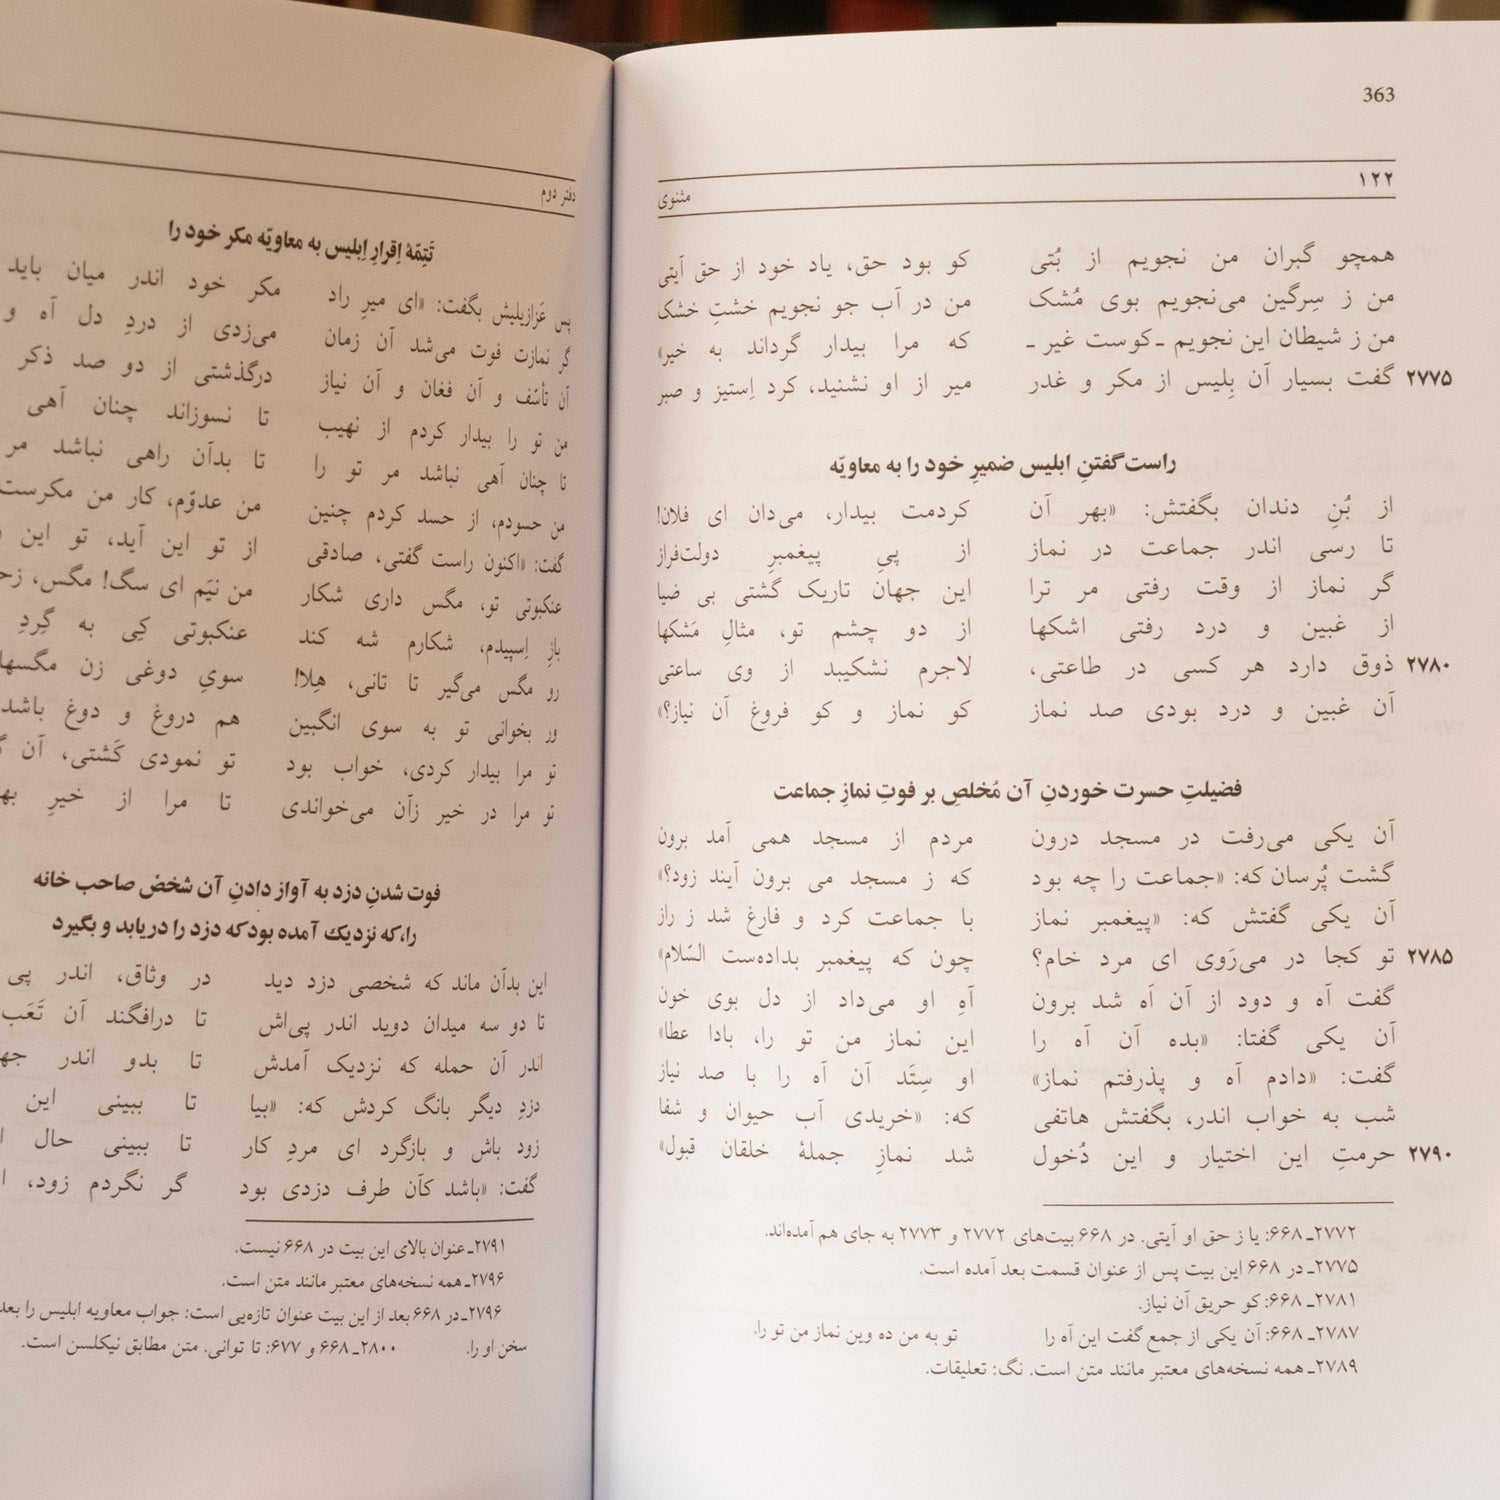 363
۱۲۲ مثنوی
همچو گبران من نجویم از بُتی کو بود حق، یاد خود از حق آیتی
من ز سِرگین می‌نجویم بوی مُشک من در آب جو نجویم خشتِ خشک
من ز شیطان این نجویم ـ کوست غیر ـ که مرا بیدار گرداند به خیر»
۲۷۷۵ گفت بسیار آن بِلیس از مکر و غدر میر از او نشنید، کرد اِستیز و صبر
راست گفتنِ ابلیس ضمیرِ خود را به معاویّه
از بُنِ دندان بگفتش: «بهر آن کردمت بیدار، می‌دان ای فلان!
تا رسی اندر جماعت در نماز از پیِ پیغمبرِ دولت‌فراز
گر نماز از وقت رفتی مر ترا این جهان تاریک گشتی بی ضیا
از غبین و درد رفتی اشکها از دو چشم تو، مثالِ مَشکها
۲۷۸۰ ذوق دارد هر کسی در طاعتی، لاجرم نشکیبد از وی ساعتی
آن غبین و درد بودی صد نماز کو نماز و کو فروغ آن نیاز؟»
فضیلتِ حسرت خوردنِ آن مُخلصِ بر فوتِ نمازِ جماعت
آن یکی می‌رفت در مسجد درون مردم از مسجد همی آمد برون
گشت پُرسان که: «جماعت را چه بود که ز مسجد می برون آیند زود؟»
آن یکی گفتش که: «پیغمبر نماز با جماعت کرد و فارغ شد ز راز
۲۷۸۵ تو کجا در می‌رَوی ای مرد خام؟ چون که پیغمبر بداده‌ست السّلام»
گفت آه و دود از آن آه شد برون آهِ او می‌داد از دل بوی خون
آن یکی گفتا: «بده آن آه را این نماز من تو را، بادا عطا»
گفت: «دادم آه و پذرفتم نماز» او سِتَد آن آه را با صد نیاز
شب به خواب اندر، بگفتش هاتفی که: «خریدی آب حیوان و شفا
۲۷۹۰ حرمتِ این اختیار و این دُخول شد نمازِ جملهٔ خلقان قبول»
۲۷۷۲ـ ۶۶۸: یا ز حق او آیتی. در ۶۶۸ بیت‌های ۲۷۷۲ و ۲۷۷۳ به جای هم آمده‌اند.
۲۷۷۵ـ در ۶۶۸ این بیت پس از عنوان قسمت بعد آمده است.
۲۷۸۱ـ ۶۶۸: کو حریق آن نیاز.
۲۷۸۷ـ ۶۶۸: آن یکی از جمع گفت این آه را تو به من ده وین نماز من تو را.
۲۷۸۹ـ همه نسخه‌های معتبر مانند متن است. نگ: تعلیقات.
دفتر دوم
تَتِمّهٔ اِقرارِ اِبلیس به معاویّه مکر خود را
پس عَزازیلیش بگفت: «ای میرِ راد مکر خود اندر میان باید
گر نمازت فوت می‌شد آن زمان می‌زدی از دردِ دل آه و
آن تأسّف و آن فغان و آن نیاز درگذشتی از دو صد ذکر
من تو را بیدار کردم از نهیب تا نسوزاند چنان آهی
تا چنان آهی نباشد مر تو را تا بدآن راهی نباشد مر
من حسودم، از حسد کردم چنین من عدوّم، کار من مکرست
گفت: «اکنون راست گفتی، صادقی از تو این آید، تو این
عنکبوتی تو، مگس داری شکار من نیَم ای سگ! مگس،
بازِ اِسپیدم، شکارم شه کند عنکبوتی کِی به گِردِ
رو مگس می‌گیر تا تانی، هِلا! سویِ دوغی زن
ور بخوانی تو به سوی انگبین هم دروغ و دوغ باشد
تو مرا بیدار کردی، خواب بود تو نمودی کَشتی، آن
تو مرا در خیر زآن می‌خواندی تا مرا از خیرِ
فوت شدنِ دزد به آواز دادنِ آن شخض صاحب خانه
را،که نزدیك آمده بود که دزد را دریابد و بگیرد
این بدآن ماند که شخصی دزد دید در وثاق، اندر پی
تا دو سه میدان دوید اندر پی‌اش تا درافگند آن تَعَب
اندر آن حمله که نزدیک آمدش تا بدو اندر
دزدِ دیگر بانگ کردش که: «بیا تا ببینی این
زود باش و بازگرد ای مردِ کار تا ببینی حال
گفت: «باشد کآن طرف دزدی بود گر نگردم زود،
۲۷۹۱ـ عنوان بالای این بیت در ۶۶۸ نیست.
۲۷۹۶ـ همه نسخه‌های معتبر مانند متن است.
۲۷۹۶ـ در ۶۶۸ بعد از این بیت عنوان تازه‌یی است: جواب معاویه ابلیس را بعد
سخن او را. ۲۸۰۰ـ ۶۶۸ و ۶۷۷: تا توانی. متن مطابق نیکلسن است.